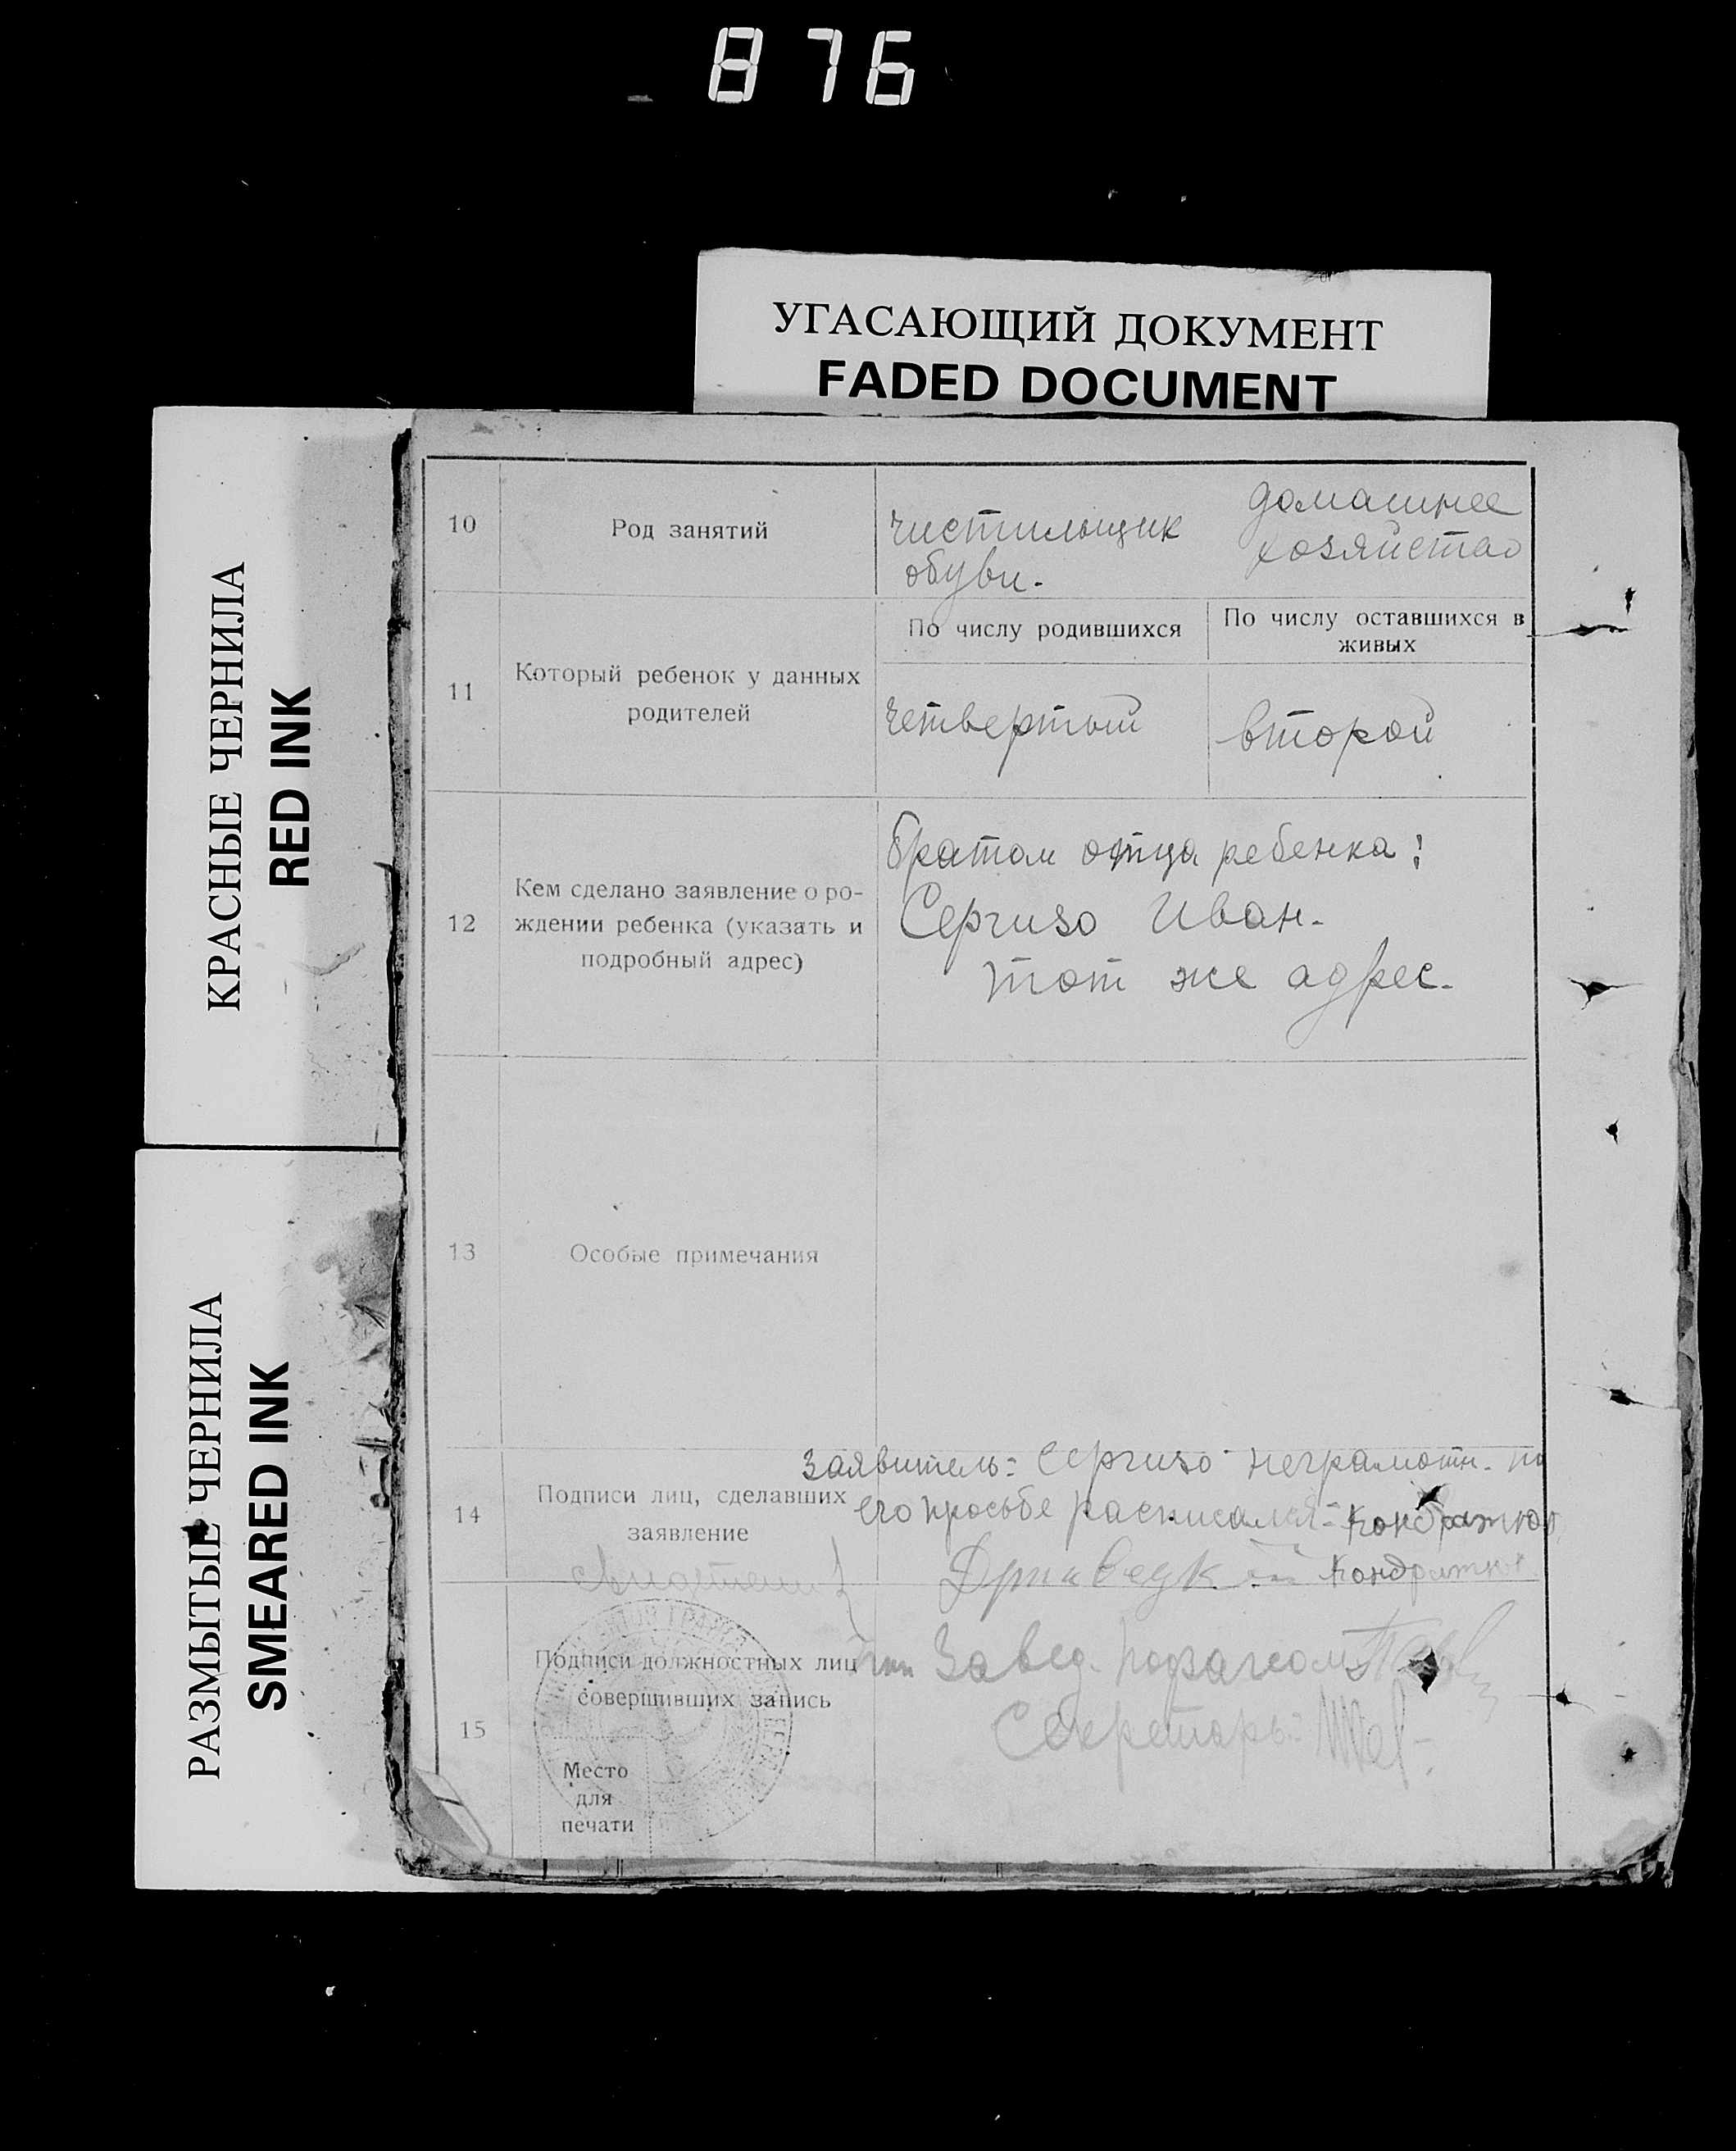 876
УГАСАЮЩИЙ ДОКУМЕНТ
FADED DOCUMENT
КРАСНЫЕ ЧЕРНИЛА
RED INK
РАЗМЫТЫЕ ЧЕРНИЛА
SMEARED INK
10
Род занятий
чистильщик
обуви.
домашнее
хозяйство
11
Который ребенок у данных
родителей
По числу родившихся
По числу оставшихся в
живых
четвертый
второй
12
Кем сделано заявление о ро-
ждении ребенка (указать и
подробный адрес)
Братом отца ребенка:
Сергизо Иван.
тот же адрес.
13
Особые примечания
14
Подписи лиц, сделавших
заявление
Заявитель: Сергизо неграмотн. по
его просьбе расписался
15
Подписи должностных лиц
совершивших запись
Завед.
Секретарь:
Место
для
печати